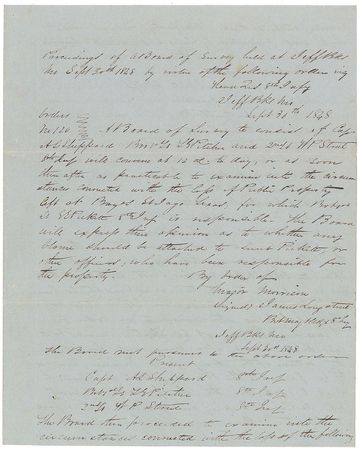 Proceedings of a Board of Survey held at Jeff Bks
Mo Sept 30th 1848 by virtue of the following orders viz
Head Qrs 8th Infy
Jeff Bks Mo
Sept 30th 1848
Orders
No 120 A Board of Survey to consist of Capt
A L Sheppard Bvt Lt T G Pitcher and 2nd Lt W P Street
8th Infy will convene at 12 oc to day, or as soon
there after as practicable to examine into the circum
stances connected with the loss of Public Property
left at Brazos St Iago Texas, for which Brevt
Lt G E Pickett 8th Infy is responsible. The Board
will express their opinion as to whether any
blame should be attached to Lieut Pickett or
other officers, who have been responsible for
the property. By order of
Major Morrison
Signed James Longstreet
Bvt Maj 8th Infy
Jeff Bks Mo
Sept 30th 1848
The Board met pursuant to the above order
Present
Capt A L Sheppard 8th Infy
Bvt Lt T G Pitcher 8th Infy
2nd Lt W P Street 8th Infy
The Board then proceeded to examine into the
circumstances connected with the loss of the following